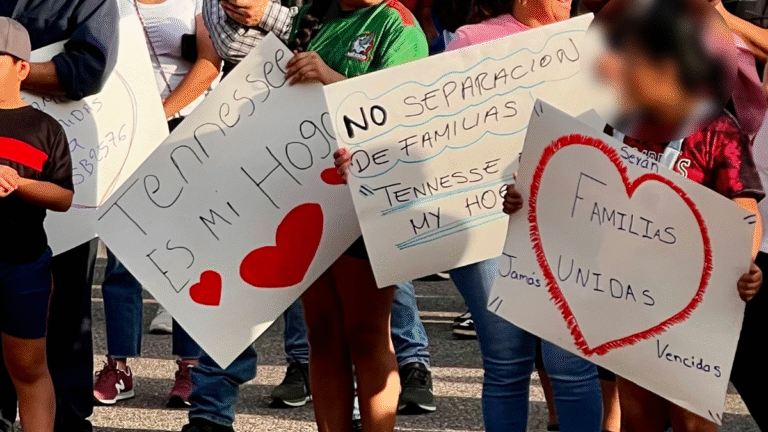 SB2576
Tennessee
ES mi Hogar
NO SEPARACION
DE FAMILIAS
"TENNESSE
MY HOG
Seyan
FAMILIAS
UNIDAS
Jamás
Vencidas
"